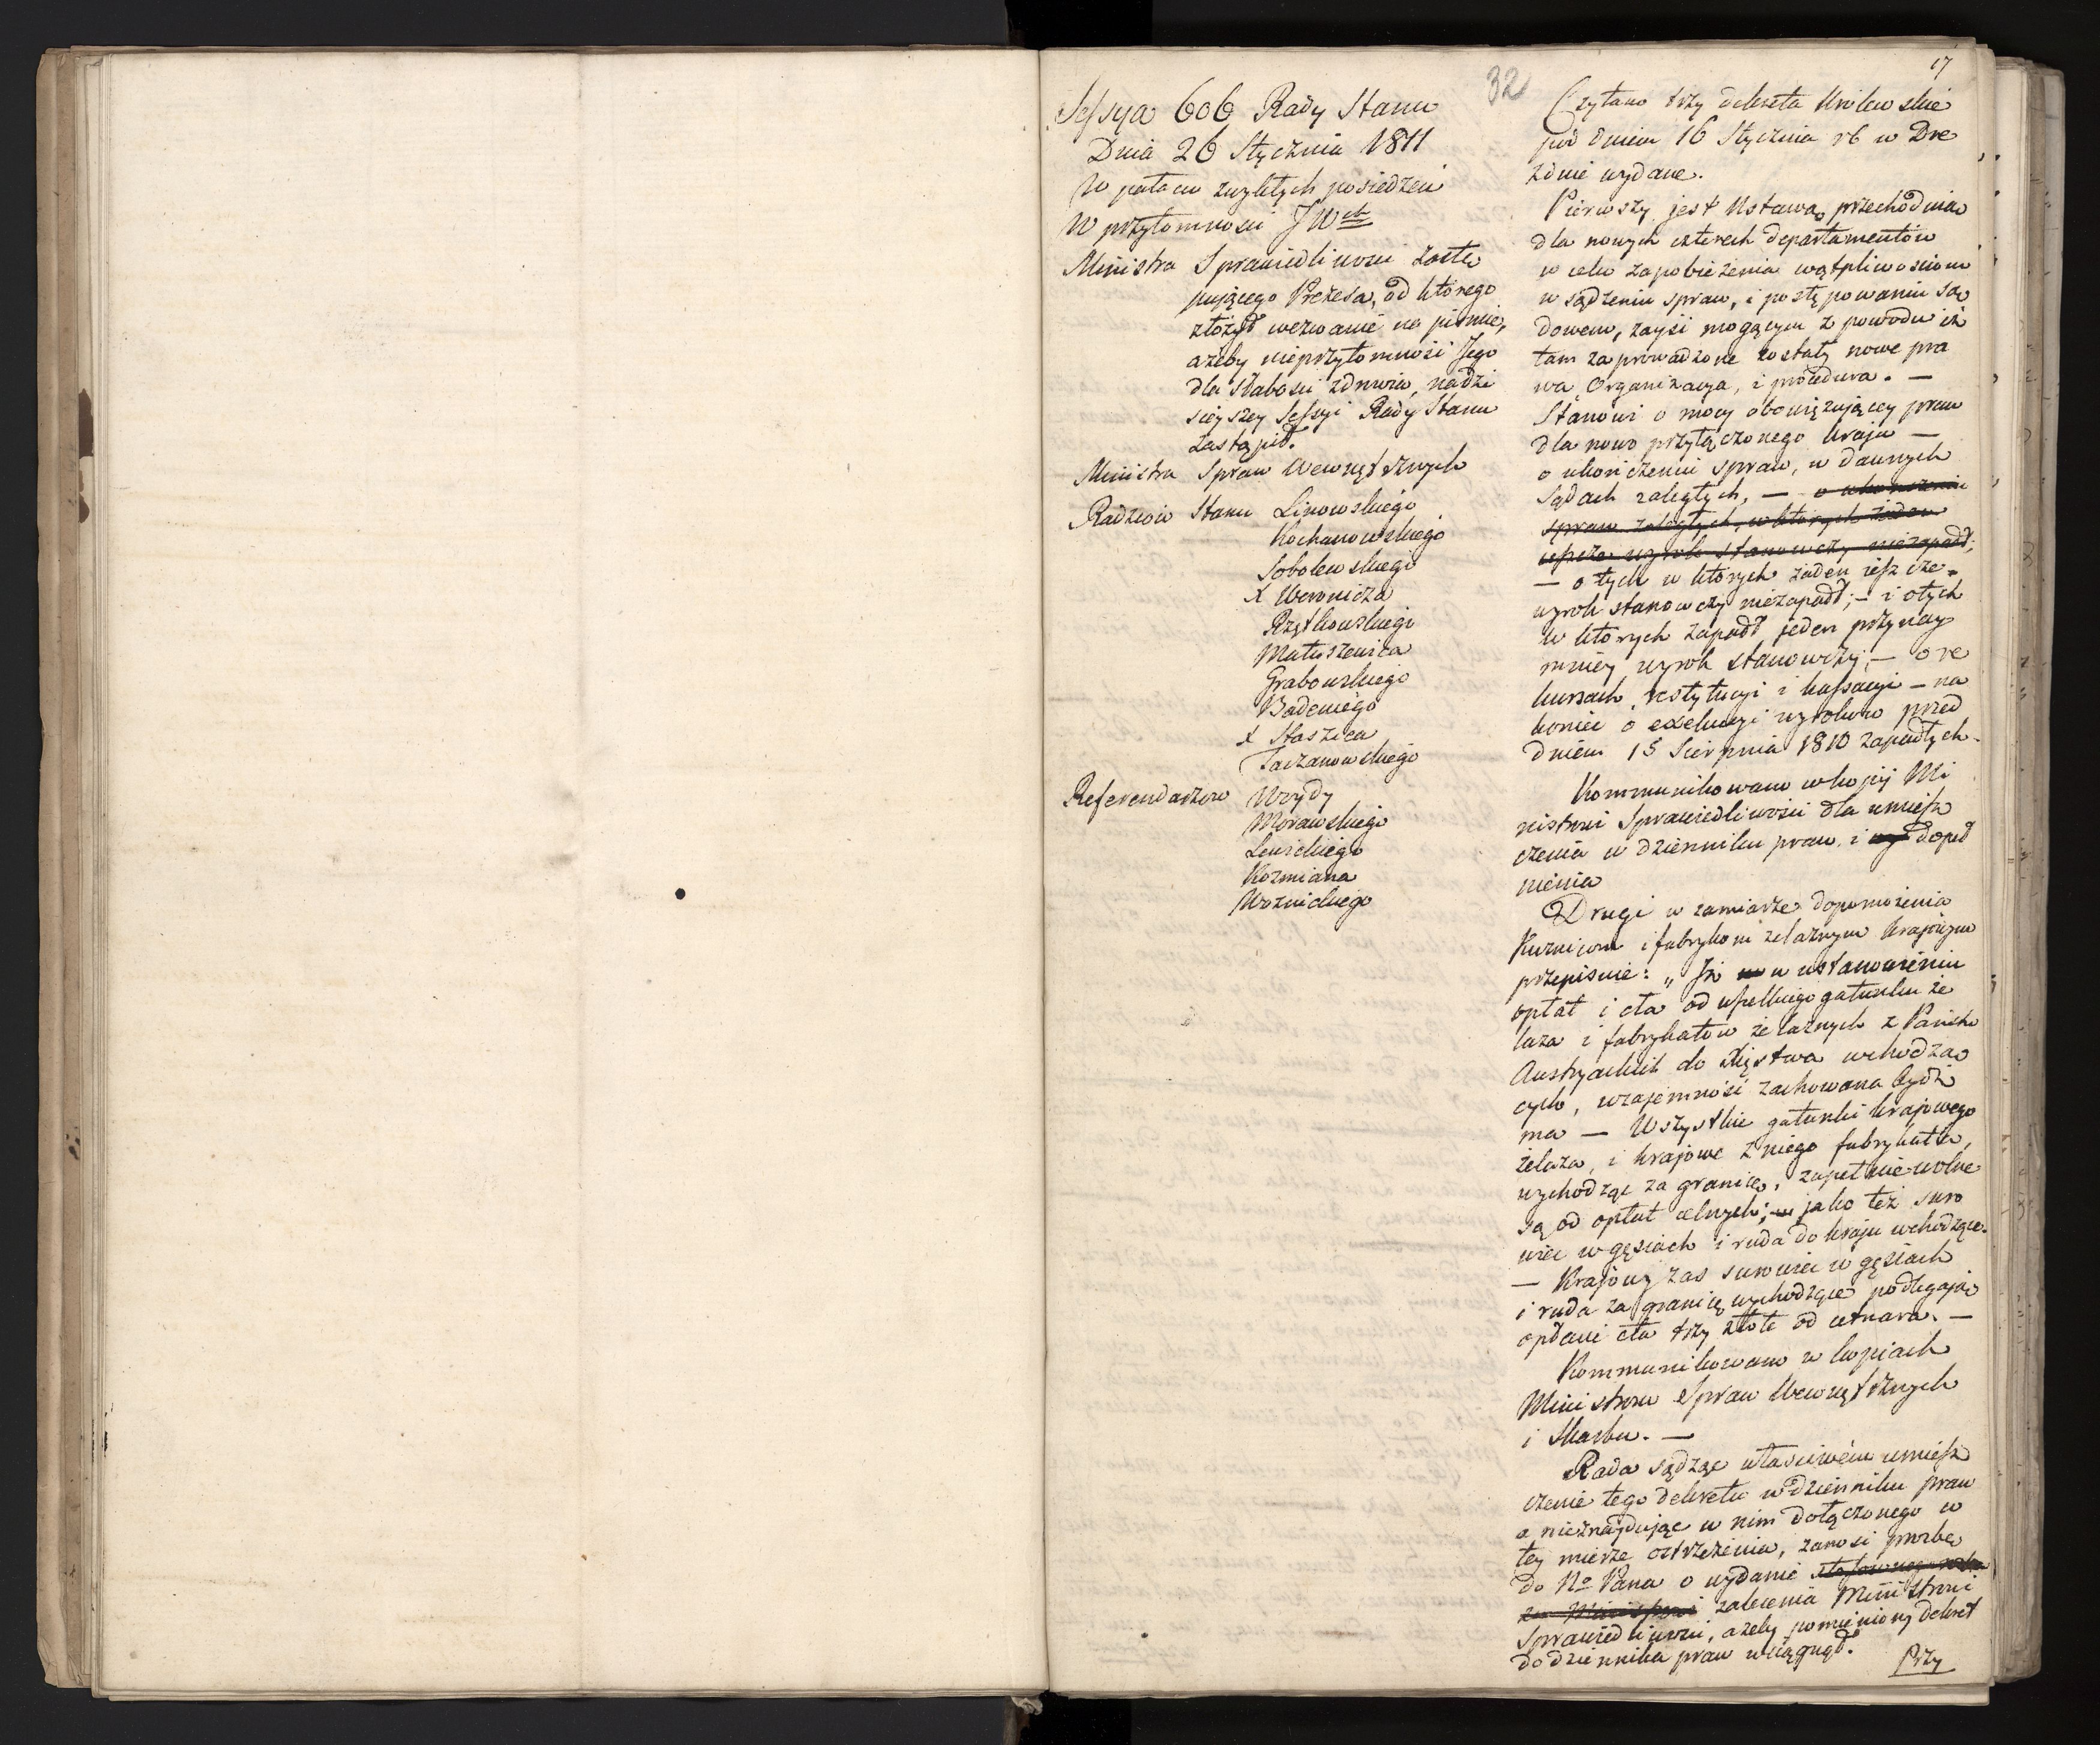 17
32
Sessya 606 Rady Stanu
Dnia 26 Stycznia 1811
W pałacu zwykłych posiedzeń
W przytomności JWch
Ministra Sprawiedliwości zastę
pującego Prezesa, od którego
złożył wezwanie na piśmie,
ażeby nieprzytomność Jego
dla słabości zdrowia, na dzi
sieyszey Sessyi Rady Stanu
zastąpił.
Ministra Spraw Wewnętrznych
Radzców Stanu Linowskiego
Kochanowskiego
Sobolewskiego
X Woronicza
Rzętkowskiego
Matuszewica
Grabowskiego
Badeniego
X Staszica
Taczanowskiego
Referendarzow Wzydy
Morawskiego
Lewickiego
Kozmiana
Woznickiego
Czytano trzy dekreta Królewskie
pod dniem 16 Stycznia rb w Dre
znie wydane.
Pierwszy jest Ustawą przechodnią
dla nowych czterech departamentów
w celu zapobieżenia wątpliwościom
w sądzeniu spraw, i postępowaniu są
dowem, zayść mogącym z powodu iż
tam zaprowadzone zostały nowe pra
wa, Organizacya, i procedura. —
Stanowi o mocy obowiązującey praw
dla nowo przyłączonego kraju —
o ukończeniu spraw, w dawnych
Sądach zaległych, — o ukończeniu
spraw zaległych, w których żaden
ieszcze wyrok stanowczy niezapadł;
— o tych w których żaden ieszcze
wyrok stanowczy niezapadł; — i o tych
w których zapadł jeden przynay
mniey wyrok stanowczy; — o re
kursach, restytucyi i kassacyi — na
koniec o exekucyi wyroków przed
dniem 15 Sierpnia 1810 zapadłych.
Kommunikowano w kopij Mi
nistrowi Sprawiedliwości dla umiesz
czenia w dzienniku praw, i dopeł
nienia
Drugi w zamiarze dopomożenia
Kuznicom i fabrykom żelaznym krajowym
przepisuie: „Iż w ustanowieniu
opłat i cła od wszelkiego gatunku że
laza i fabrykatów żelaznych z Państw
Austryackich do Xięstwa wchodzą
cych, wzajemność zachowana bydź
ma — Wszystkie gatunki krajowego
żelaza, i krajowe z niego fabrykata,
wychodząc za granicę, zapełnie wolne
są od opłat celnych; jako też suro
wiec w gęsiach i ruda do kraju wchodzące.
— Krajowy zas surowiec w gęsiach
i ruda za granicę wychodzące podlegają
opłacie cła trzy złote od cetnara. —
Kommunikowano w kopiach
Ministrom Spraw Wewnętrznych
i Skarbu. —
Rada sądząc właściwém umiesz
czenie tego dekretu w dzienniku praw
a nieznajdując w nim dołączonego w
tey mierze ostrzeżenia, zanosi prozbę
do No Pana o wydanie
zalecenia Ministrowi
Sprawiedliwości, ażeby pomieniony dekret
do dziennika praw wciągnął.
Przy